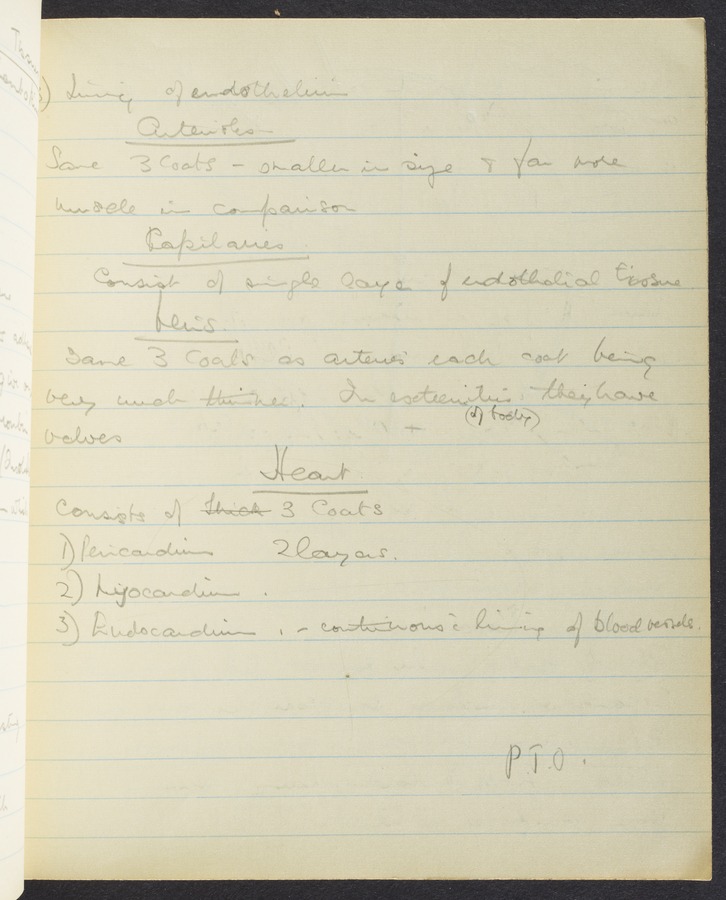 3) Lining of endothelium
Arterioles
Same 3 Coats - smaller in size & far more
muscle in comparison
Capilaries
Consist of single layer of endothelial tissue
Veins.
Same 3 Coats as arteries each coat being
very much thinner. In extremities they have
(of body)
valves
Heart
Consists of thick 3 Coats
1) Pericardium 2 layers.
2) Myocardium.
3) Endocardium. - continuous c̄ lining of blood vessels.
P.T.O.